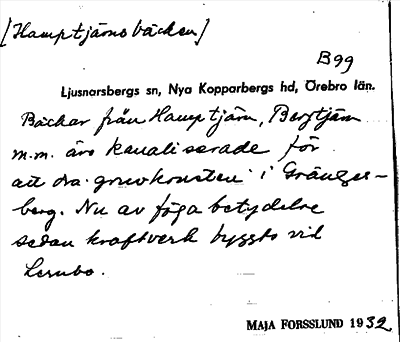 [Hamptjärnsbäcken]
B99
Ljusnarsbergs sn, Nya Kopparbergs hd, Örebro län.
Bäckar från Hamptjärn, Bergtjärn
m.m. äro kanaliserade för
att dra gruvkonsten i Gränges-
berg. Nu av föga betydelse
sedan kraftverk byggts vid
Lernbo.
MAJA FORSSLUND 1932